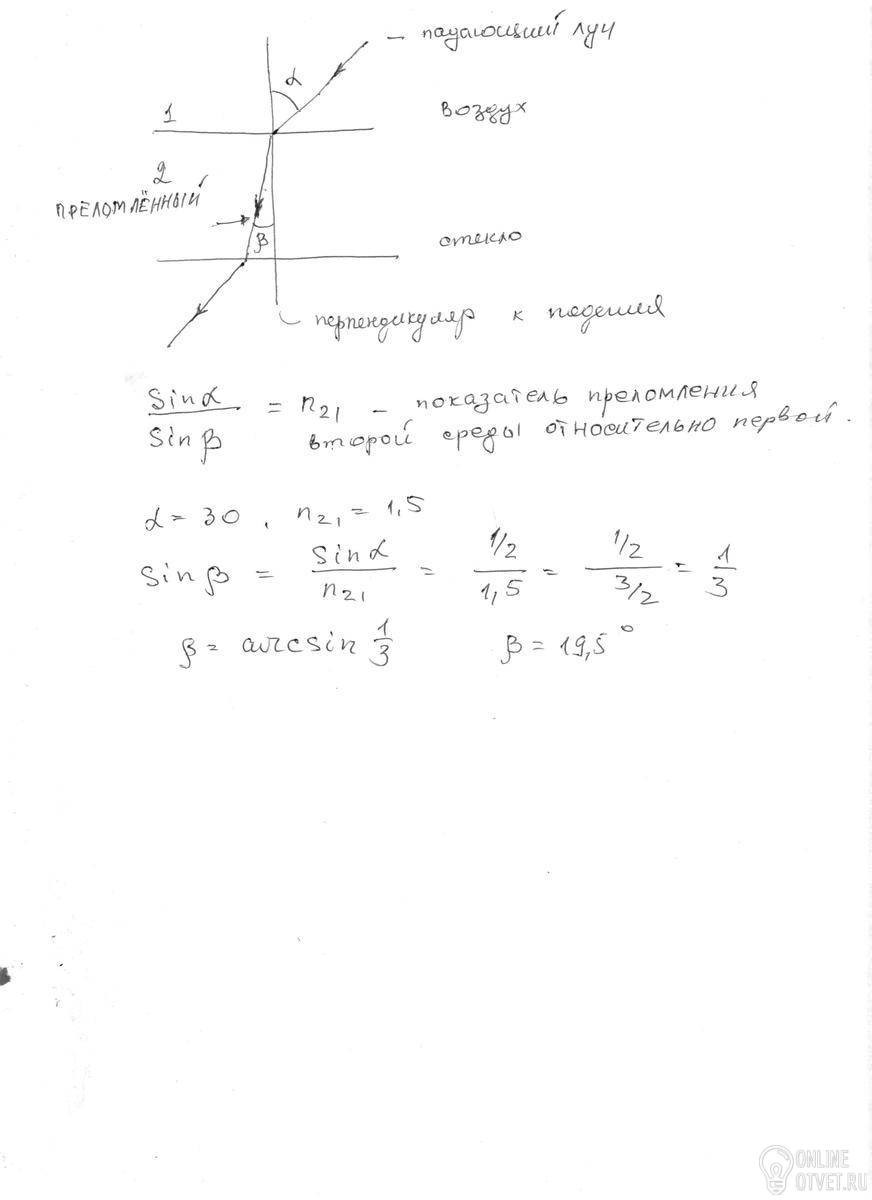 — падающий луч
α
1
воздух
2
ПРЕЛОМЛЁННЫЙ
β
стекло
перпендикуляр к
sinα / sinβ = n21 — показатель преломления
второй среды относительно первой.
α = 30, n21 = 1,5
sinβ = sinα / n21 = 1/2 / 1,5 = 1/2 / 3/2 = 1/3
β = arcsin 1/3 β = 19,5°
ONLINE
OTVET.RU